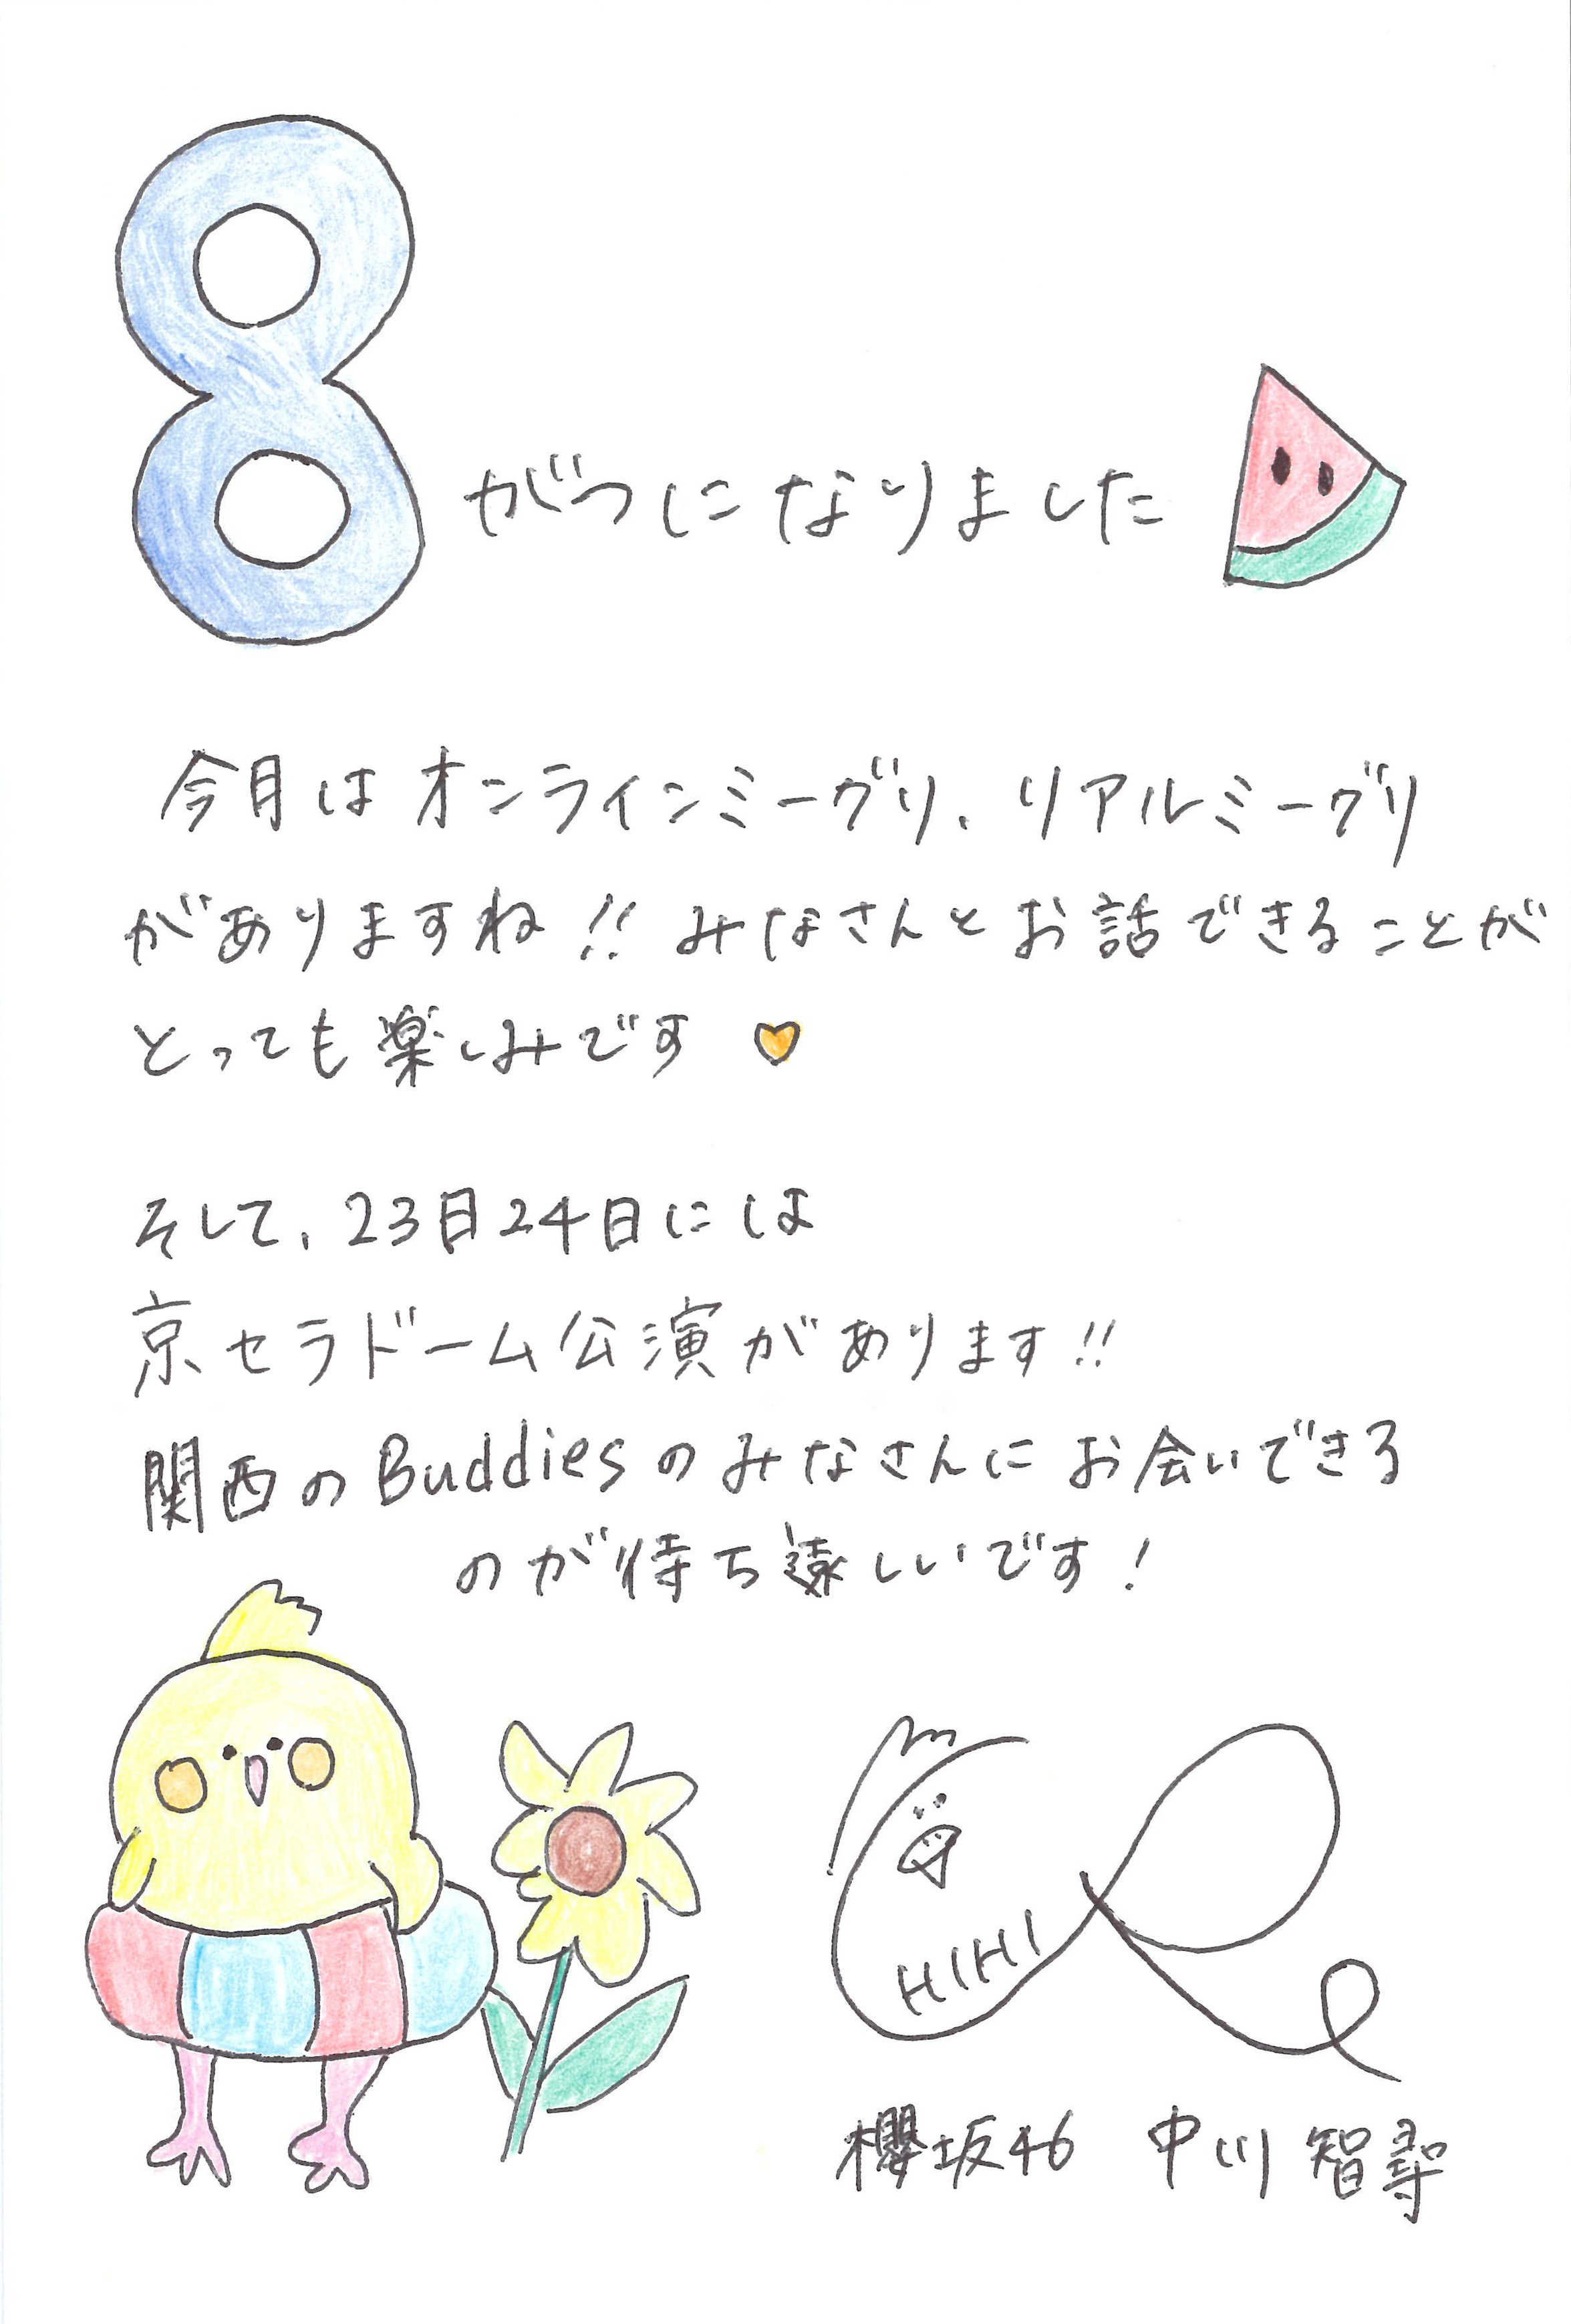 8がつになりました
今月はオンラインミーグリ、リアルミーグリ
がありますね!! みなさんとお話できることが
とっても楽しみです
そして、23日24日には
京セラドーム公演があります!!
関西のBuddiesのみなさんにお会いできる
のが待ち遠しいです!
HIHI
櫻坂46 中川智尋